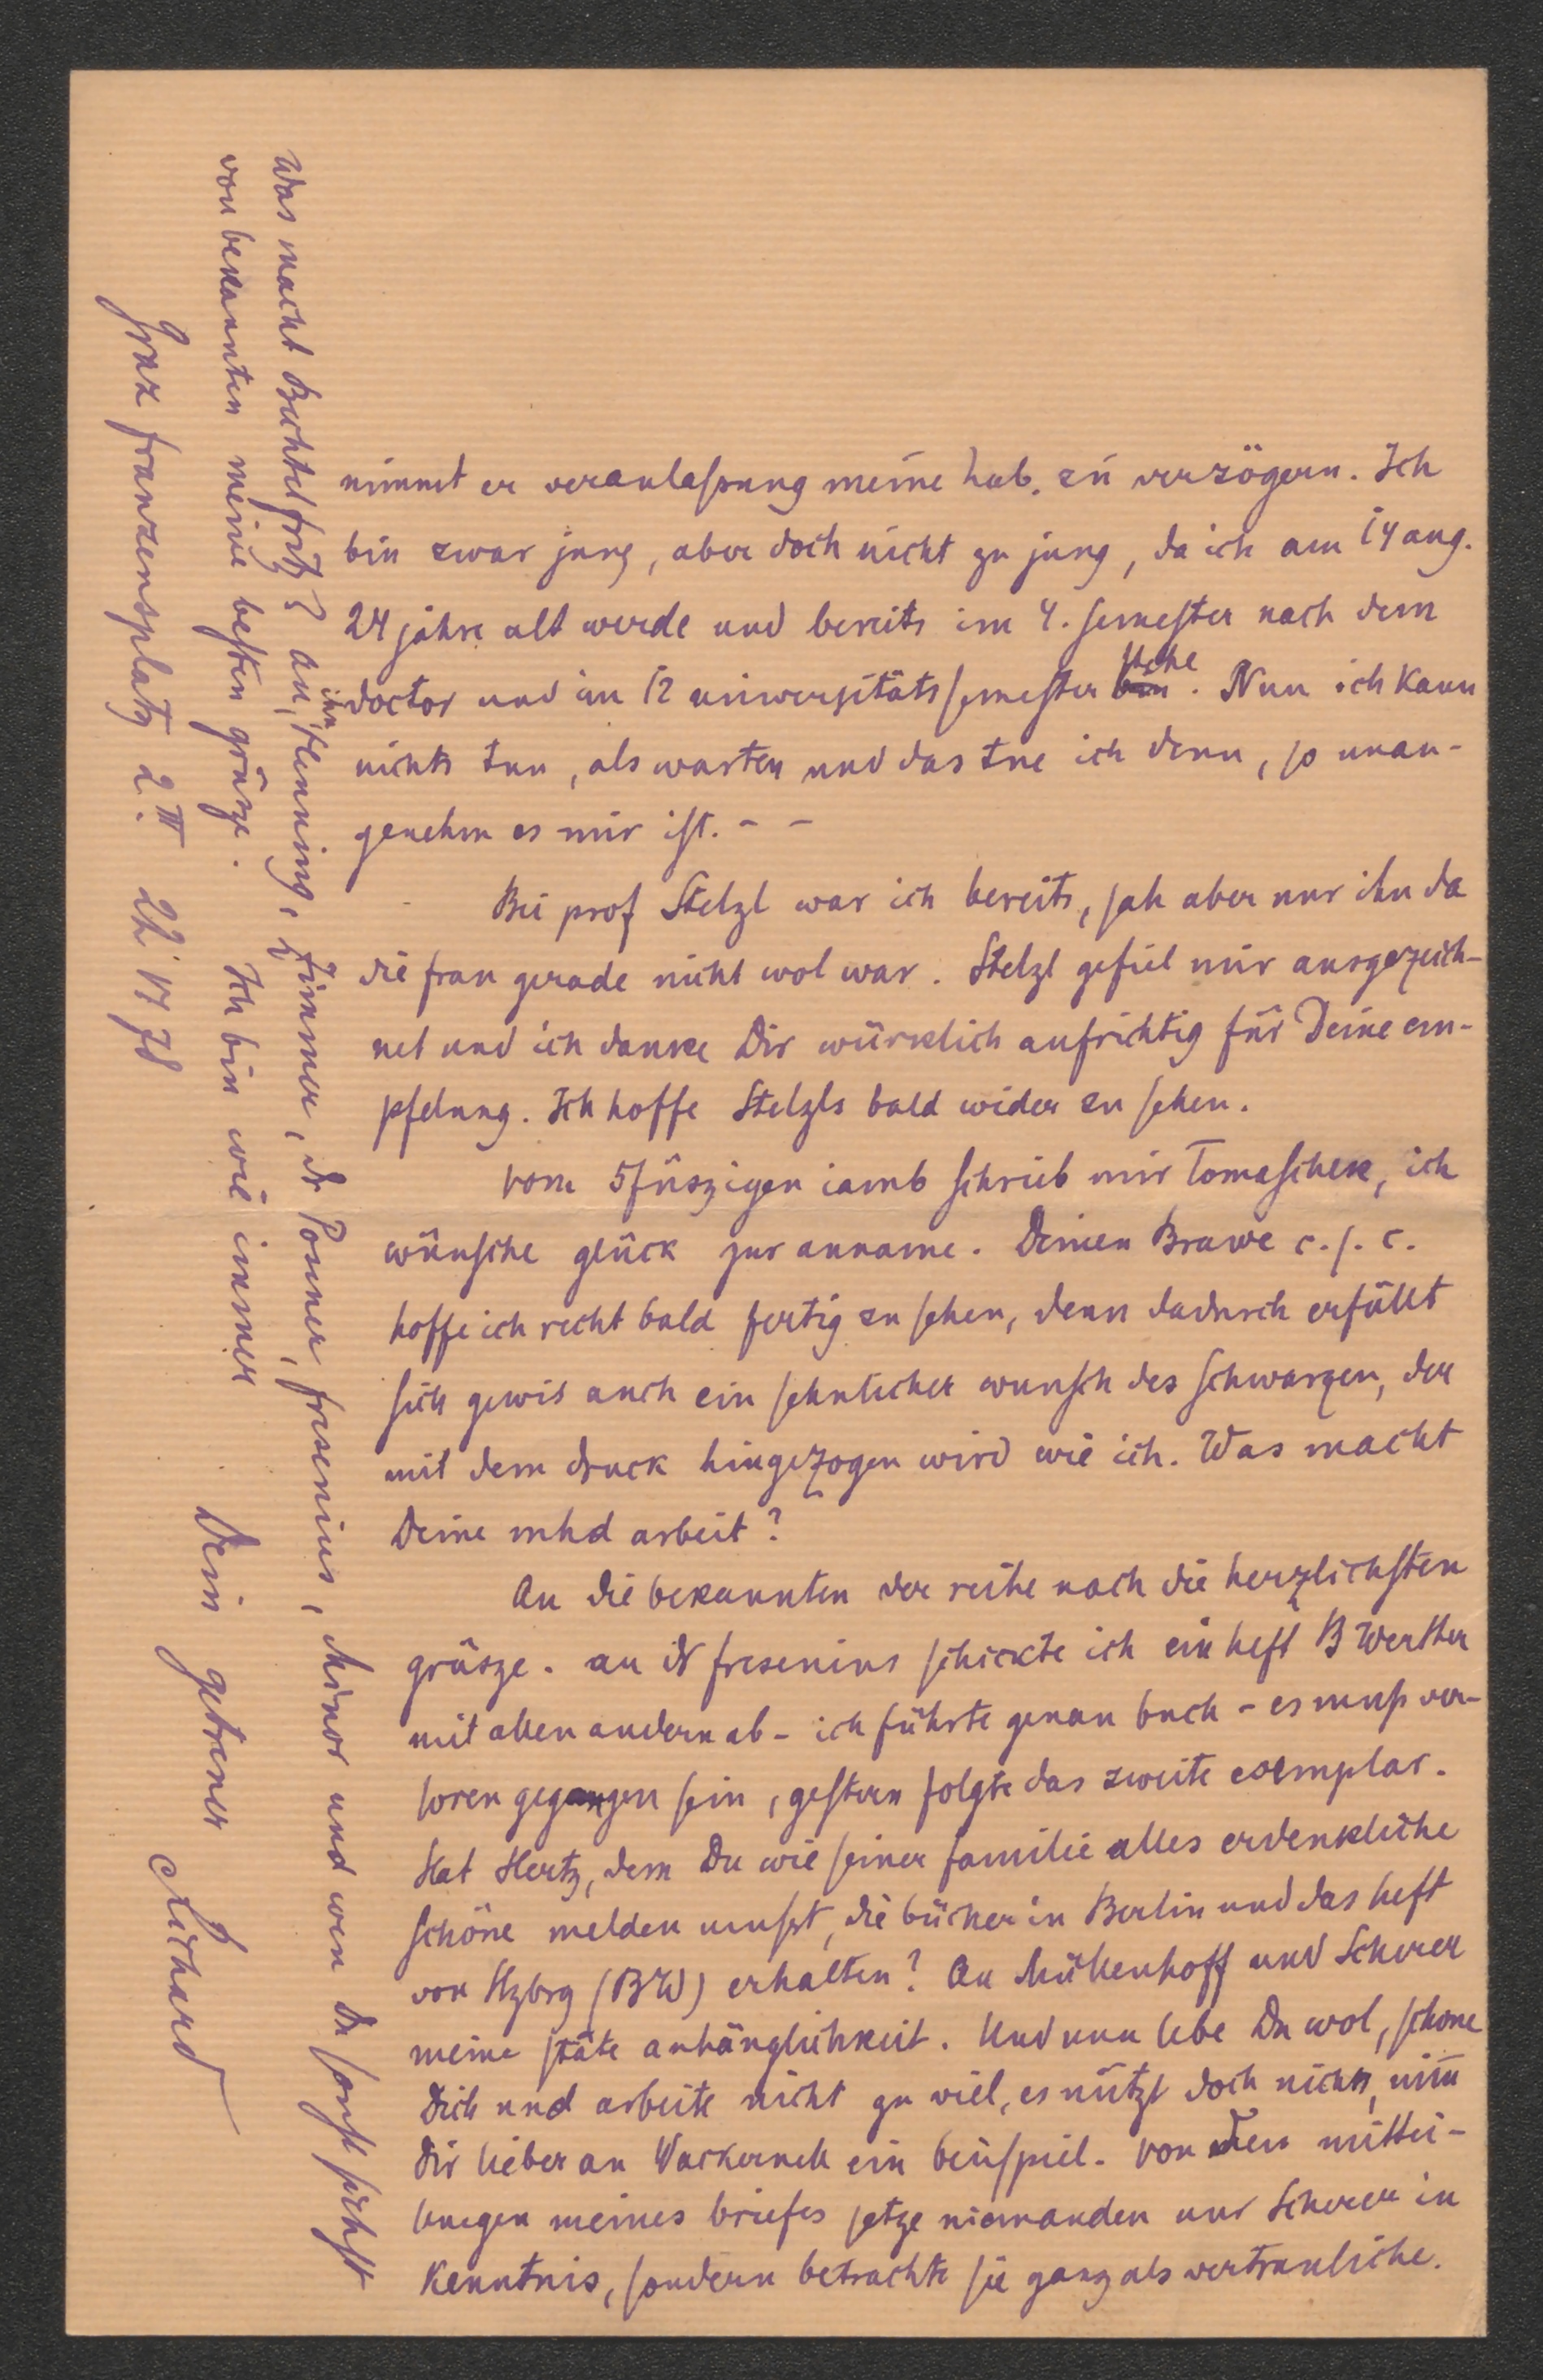 nimmt er veranlaſsung meine hab. zu verzögern. Ich
bin zwar jung, aber doch nicht zu jung, da ich am 14 aug.
24 jahre alt werde und bereits im 4. ſemeſter nach dem
doctor und im 12 univerſitätsſemeſter bin ſtehe. Nun ich kann
nichts tun, als warten und das tue ich denn, ſo unan-
genehm es mir iſt. - -
Bei prof Stelzl war ich bereits, ſah aber nur ihn da
die frau gerade nicht wol war. Stelzl gefiel mir ausgezeich-
net und ich danke Dir würklich aufrichtig für Deine em-
pfelung. Ich hoffe Stelzls bald wider zu ſehen.
Vom 5füszigen iamb ſchrieb mir Tomaſchek, ich
wünſche glück zur anname. Deinen Brawe c. ſ. c.
hoffe ich recht bald fertig zu ſehen, denn dadurch erfüllt
ſich gewis auch ein ſehnlicher wunſch des ſchwarzen, der
mit dem druck hingezogen wird wie ich. Was macht
Deine mhd arbeit?
An die bekannten der reihe nach die herzlichſten
grüsze. an dr freſenius ſchickte ich ein heft B Werther
mit allen andern ab - ich führte genau buch - es muſs ver-
loren gegangen ſein, geſtern folgte das zweite exemplar.
Hat Hertz, dem Du wie ſeiner familie alles erdenkliche
ſchöne melden muſst, die bücher in Berlin und das heft
von Hzbrg (BW) erhalten? An Müllenhoff und Scherer
meine ſtäte anhänglichkeit. Und nun lebe Du wol, ſchone
Dich und arbeite nicht zu viel, es nützt doch nichts, nim̄
Dir lieber an Wackernell ein beiſpiel. Von den mittei-
lungen meines briefes ſetze niemanden nur Scherer in
Kenntnis, ſondern betrachte ſie ganz als vertrauliche.
Was macht Bechtel fritz? an ihn, Henning, Zimmer, dr Posner, freſenius, Minor und wen Du ſonſt ſichſt
von bekannten meine beſten grüsze. Ich bin wie immer
Dein getreuer Richard
Graz franzensplatz 2. III 24 VI 78